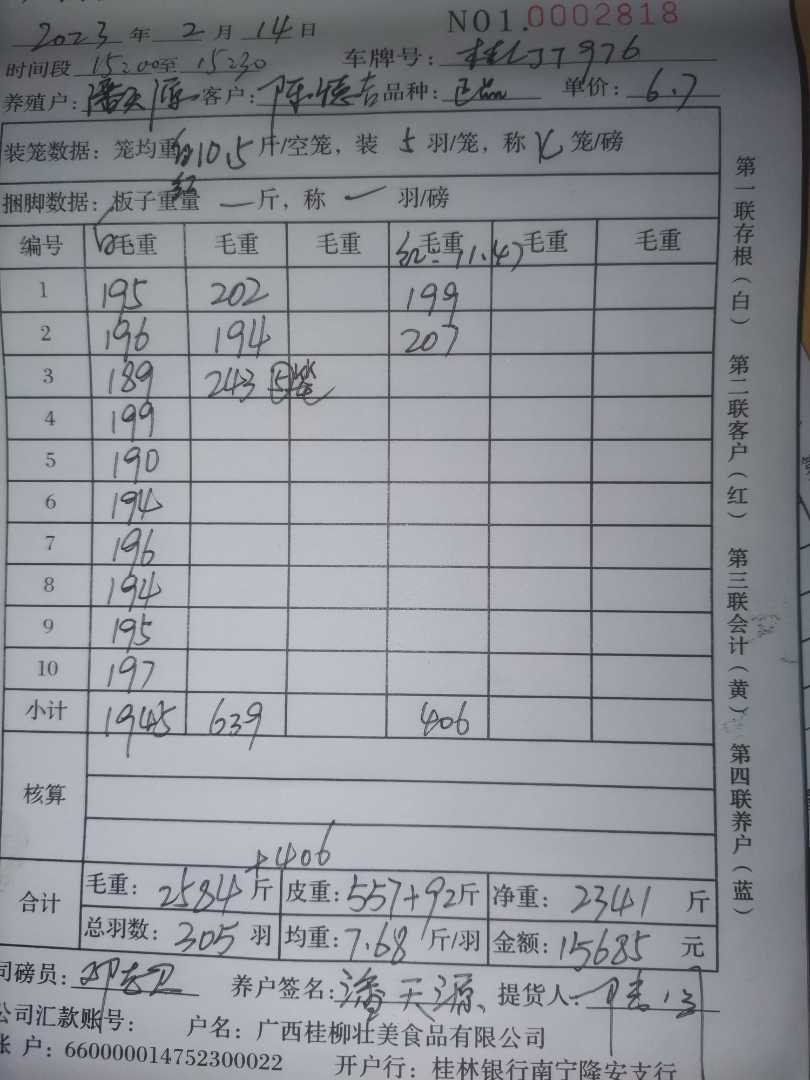 2023 年 2 月 14 日 NO1.0002818
时间段 15:00至 15:30 车牌号: 桂 976
养殖户: 潘天源 客户: 陈德吉 品种: 单价: 6.7
装笼数据: 笼均重 白10.5 斤/空笼, 装 5 羽/笼, 称 笼/磅
红
捆脚数据: 板子重量 — 斤, 称 — 羽/磅
编号 白毛重 毛重 毛重 毛重 毛重 毛重
红: 11.47
1 195 202 199
2 196 194 207
3 189 243 5笼
4 199
5 190
6 194
7 196
8 194
9 195
10 197
小计 1945 639 406
核算
+406
合计 毛重: 2584 斤 皮重: 557+92斤 净重: 2341 斤
总羽数: 305 羽 均重: 7.68 斤/羽 金额: 15685 元
司磅员: 养户签名: 潘天源 提货人:
公司汇款账号: 户名: 广西桂柳壮美食品有限公司
账 户: 660000014752300022 开户行: 桂林银行南宁隆安支行
第一联存根(白) 第二联客户(红) 第三联会计(黄) 第四联养户(蓝)